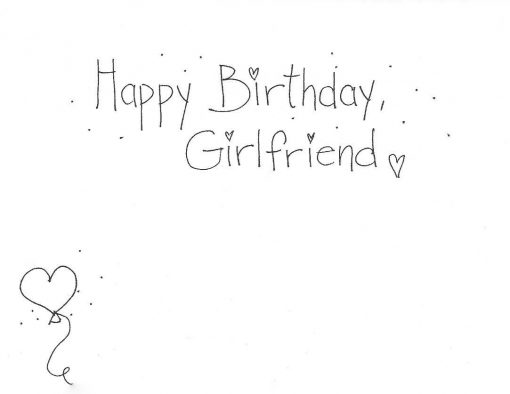 Happy Birthday,
Girlfriend